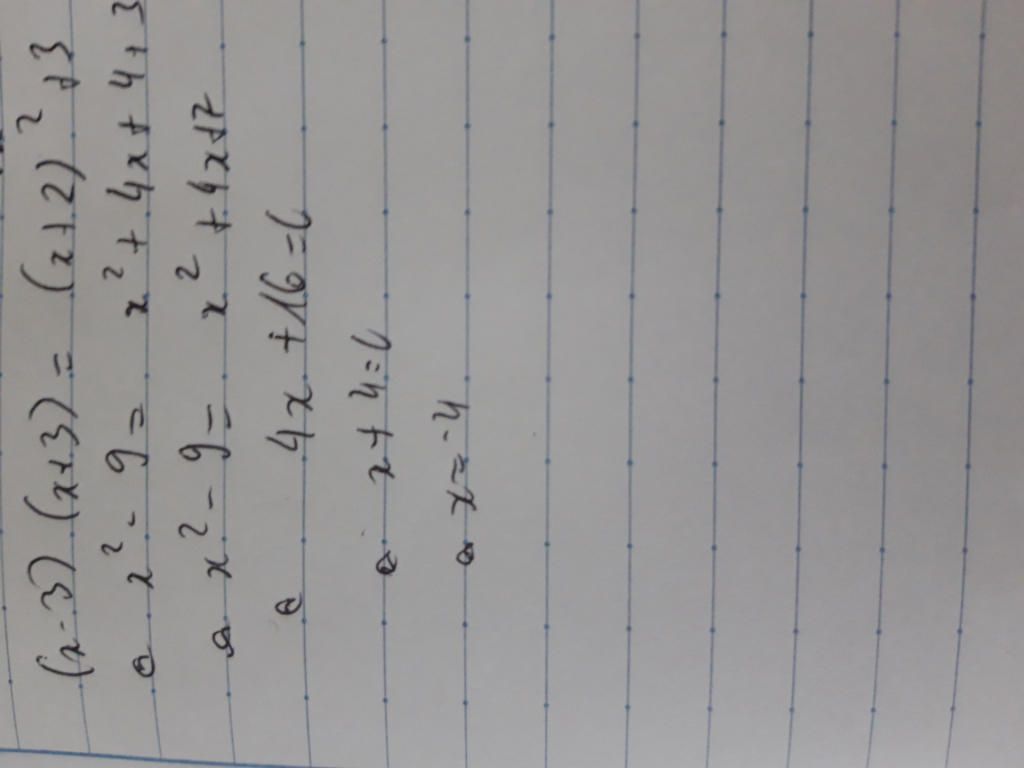 (x-3)(x+3) = (x+2)² +3
x² - 9 = x² + 4x + 4 + 3
x² - 9 = x² + 4x+7
4x +16 = 0
x + 4 = 0
x = -4